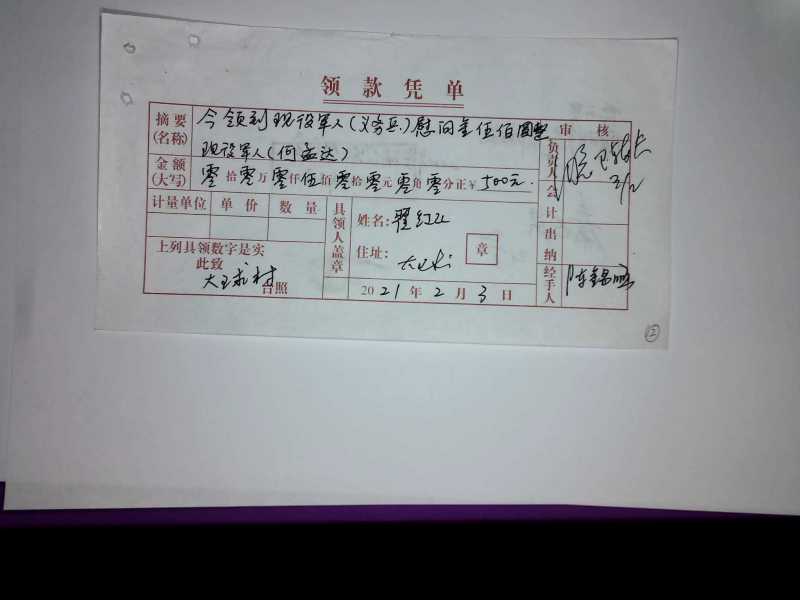 领款凭单
摘要(名称) 今领到现役军人(义务兵)慰问金伍佰圆整
现役军人(何孟达)
审核
金额(大写) 零拾零万零仟伍佰零拾零元零角零分正¥500元.
负责人
3/2
计量单位 单价 数量
具领人盖章
姓名: 翟红
会计
住址: 大王
章
出纳
上列具领数字是实
此致
大王 村 台照
2021年2月3日
经手人 陈
②